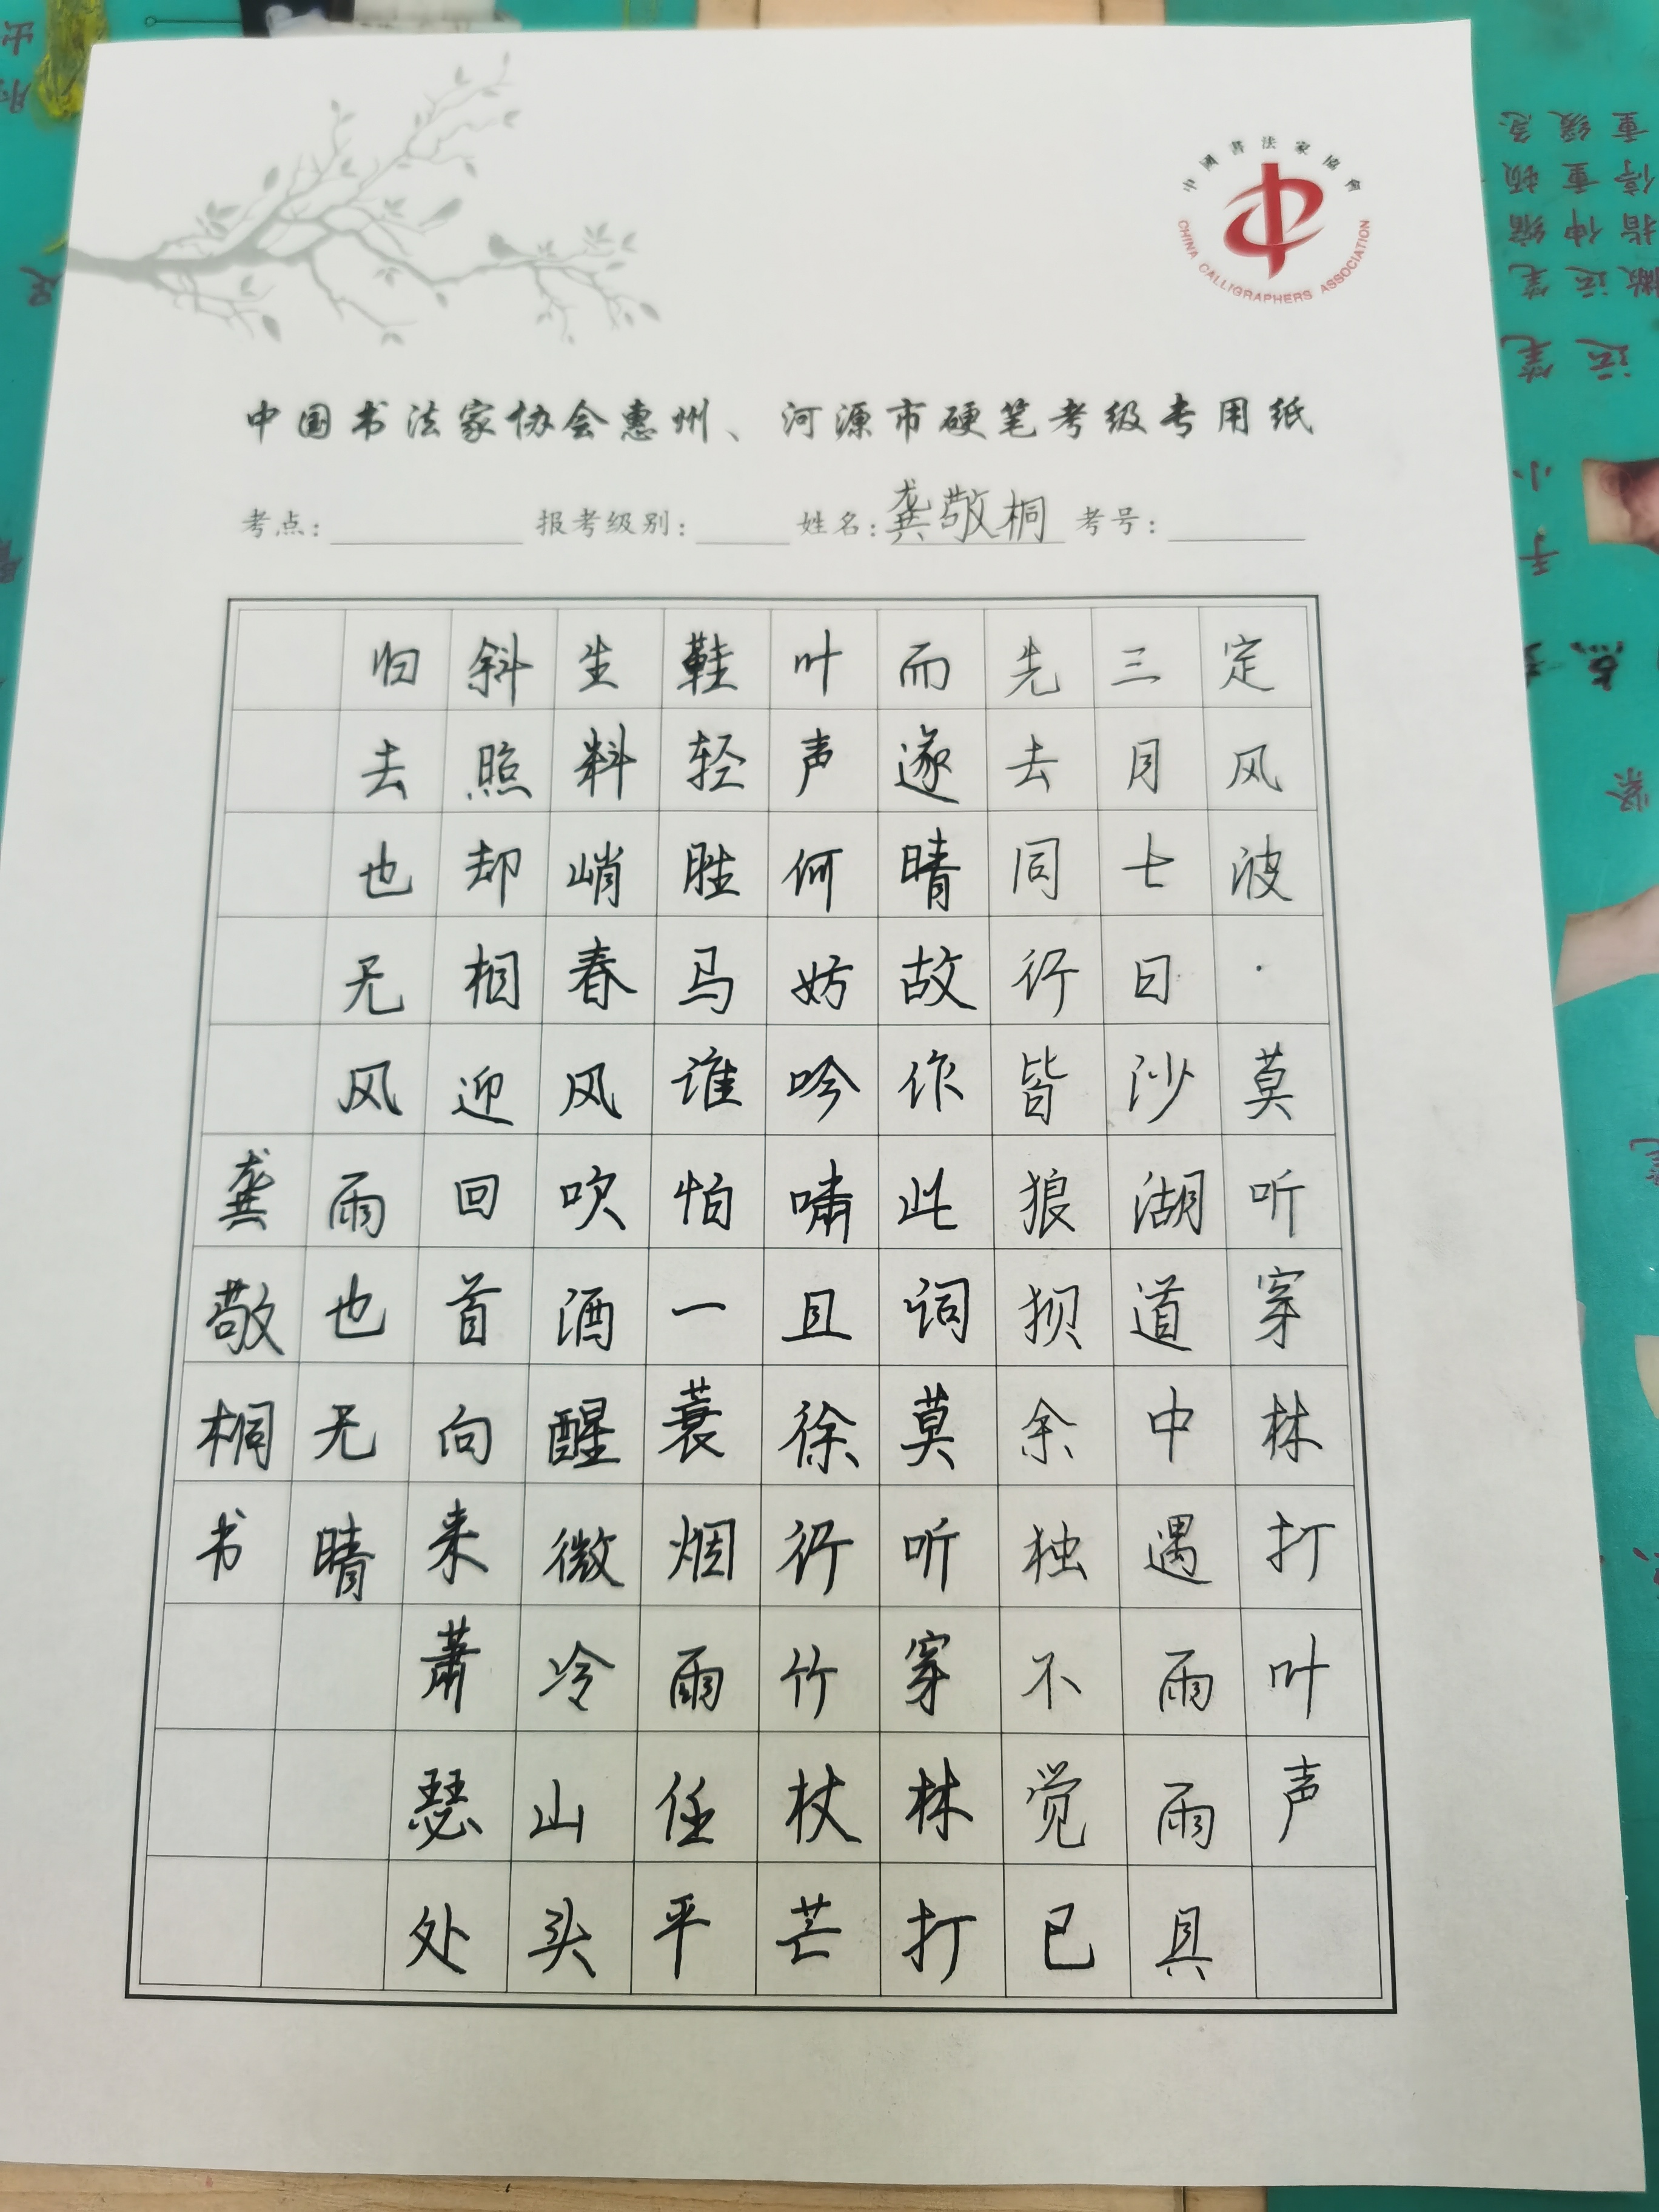 中國書法家協會
CHINA CALLIGRAPHERS ASSOCIATION
中国书法家协会惠州、河源市硬笔考级专用纸
考点: 报考级别: 姓名:龚敬桐 考号:
定风波·莫听穿林打叶声
三月七日沙湖道中遇雨雨具
先去同行皆狼狈余独不觉已
而遂晴故作此词莫听穿林打
叶声何妨吟啸且徐行竹杖芒
鞋轻胜马谁怕一蓑烟雨任平
生料峭春风吹酒醒微冷山头
斜照却相迎回首向来萧瑟处
归去也无风雨也无晴
龚敬桐书